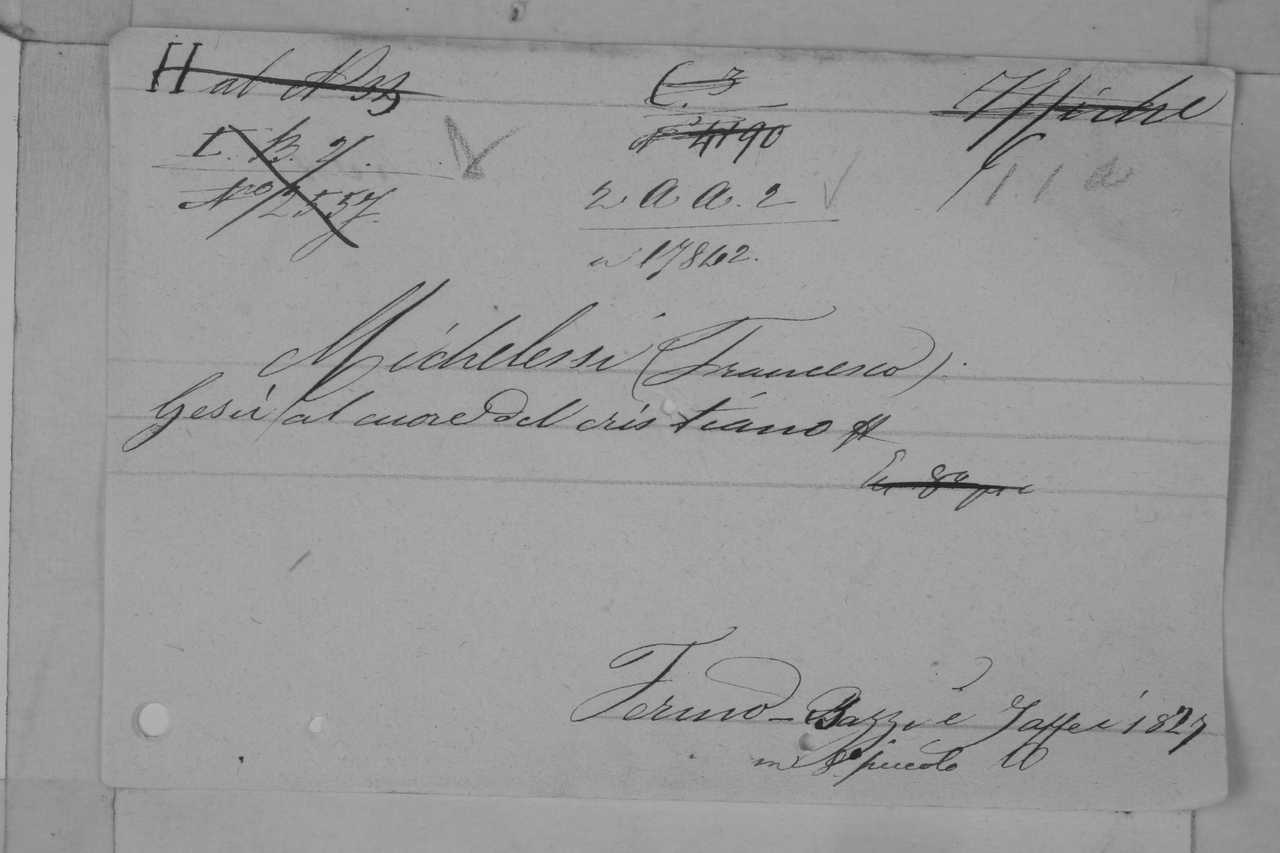 H al N 33
C. 3
I. B. 7.
N° 4190
N.ro 2557.
2 A A. 2
1.1 a
n 17862.
Michelessi (Francesco).
Gesù al cuore del cristiano
in 8°
Fermo - Bazzi e 1827
in 8° piccolo